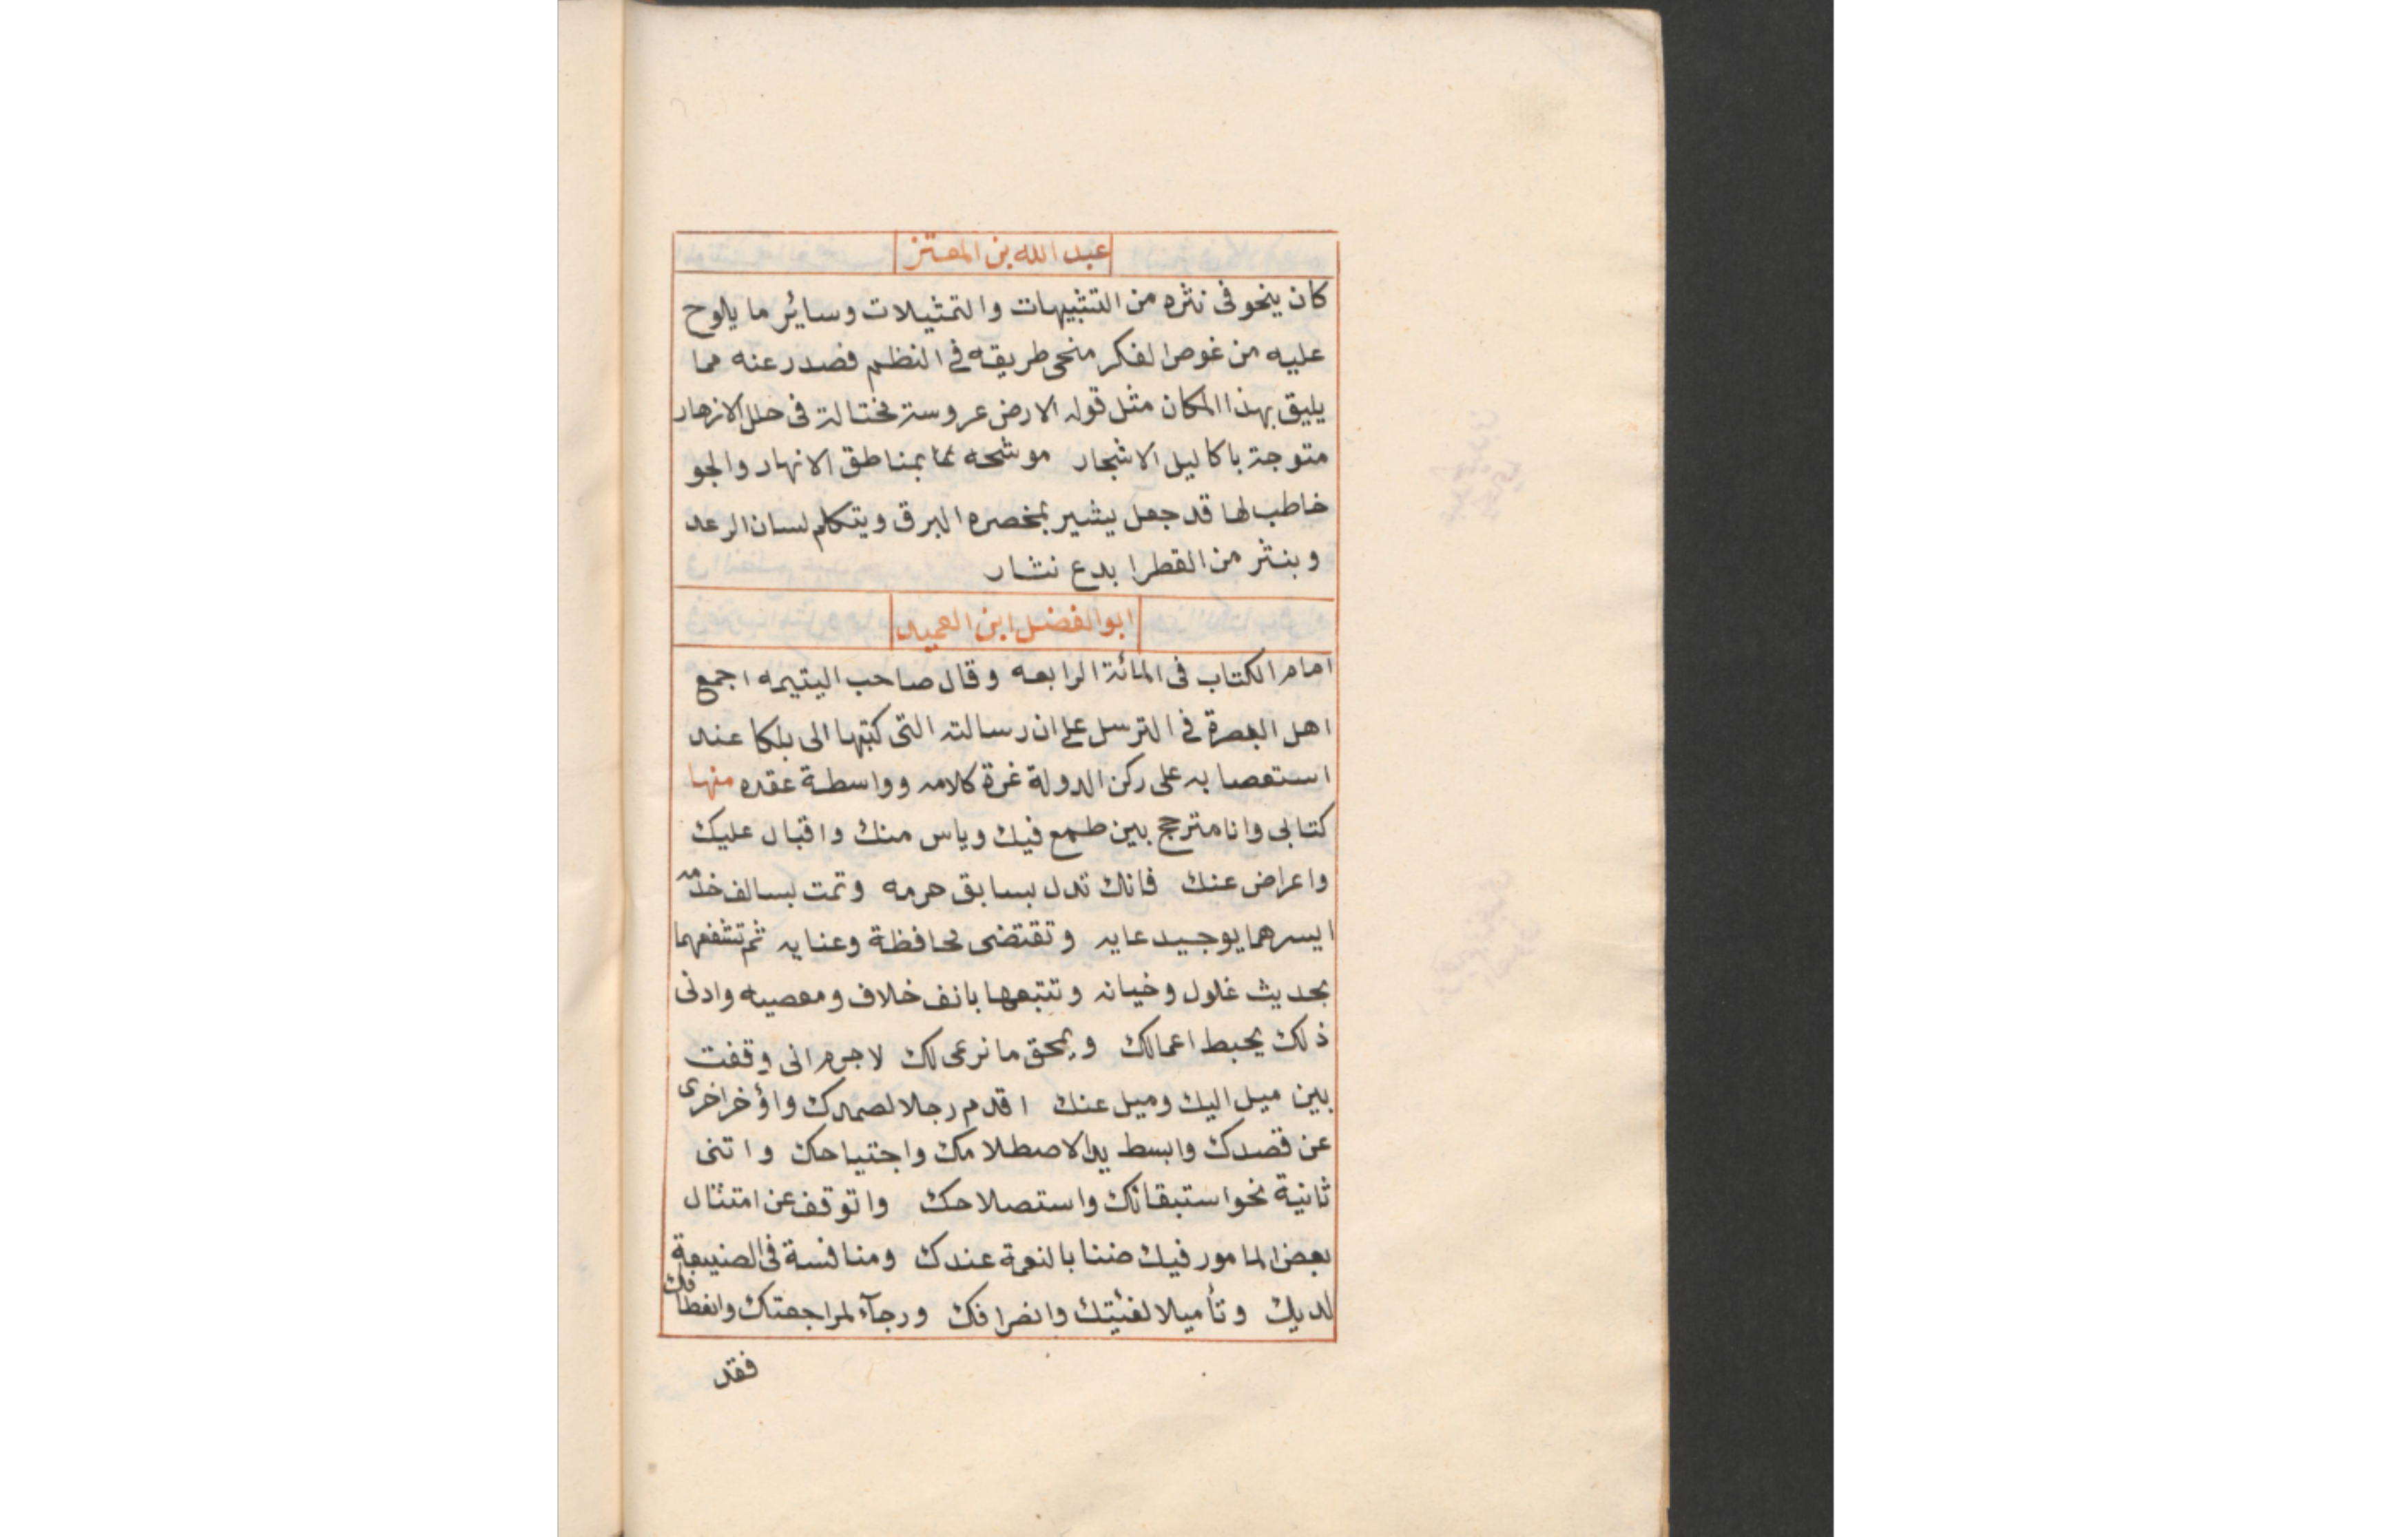 عبد الله بن المعتز
كان ينحو فى نثره من التشبيهات والتمثيلات وسائر ما يلوح
عليه من غوص الفكر منحى طريقه في النظم فصدر عنه مما
يليق بهذا المكان مثل قوله الارض عروسة مختالة فى حلل الازهار
متوجة باكاليل الاشجار موشحه بمناطق الانهار والجو
خاطب لها قد جعل يشير بمخصره البرق ويتكلم لسان الرعد
وينثر من القطر ابدع نثار
ابو الفضل ابن العميد
امام الكتاب فى المائة الرابعه وقال صاحب اليتيمه اجمع
اهل البصرة في الترسل على ان رسالته التى كتبها الى بلكا عند
استعصا به على ركن الدولة غرة كلامه وواسطة عقده منها
كتابى وانا مترجح بين طمع فيك وياس منك واقبال عليك
واعراض عنك فانك تدل بسابق حرمه وتمت بسالف خدمه
ايسرهما يوجب رعايه وتقتضى محافظة وعنايه ثم تشفعهما
بحديث غلول وخيانه وتتبعها بانف خلاف ومعصيه وادنى
ذلك يحبط اعمالك ويمحق ما نرعى لك لاجرم انى وقفت
بين ميل اليك وميل عنك اقدم رجلا لصمدك واؤخر اخرى
عن قصدك وابسط يدا لاصطلامك واجتياحك واثنى
ثانية نحو استبقائك واستصلاحك واتوقف عن امتثال
بعض المامور فيك ضنا بالنعمة عندك ومنافسة فى الصنيعة
لديك وتأميلا لفئيتك وانصرافك ورجآء لمراجعتك وانعطافك
فقد